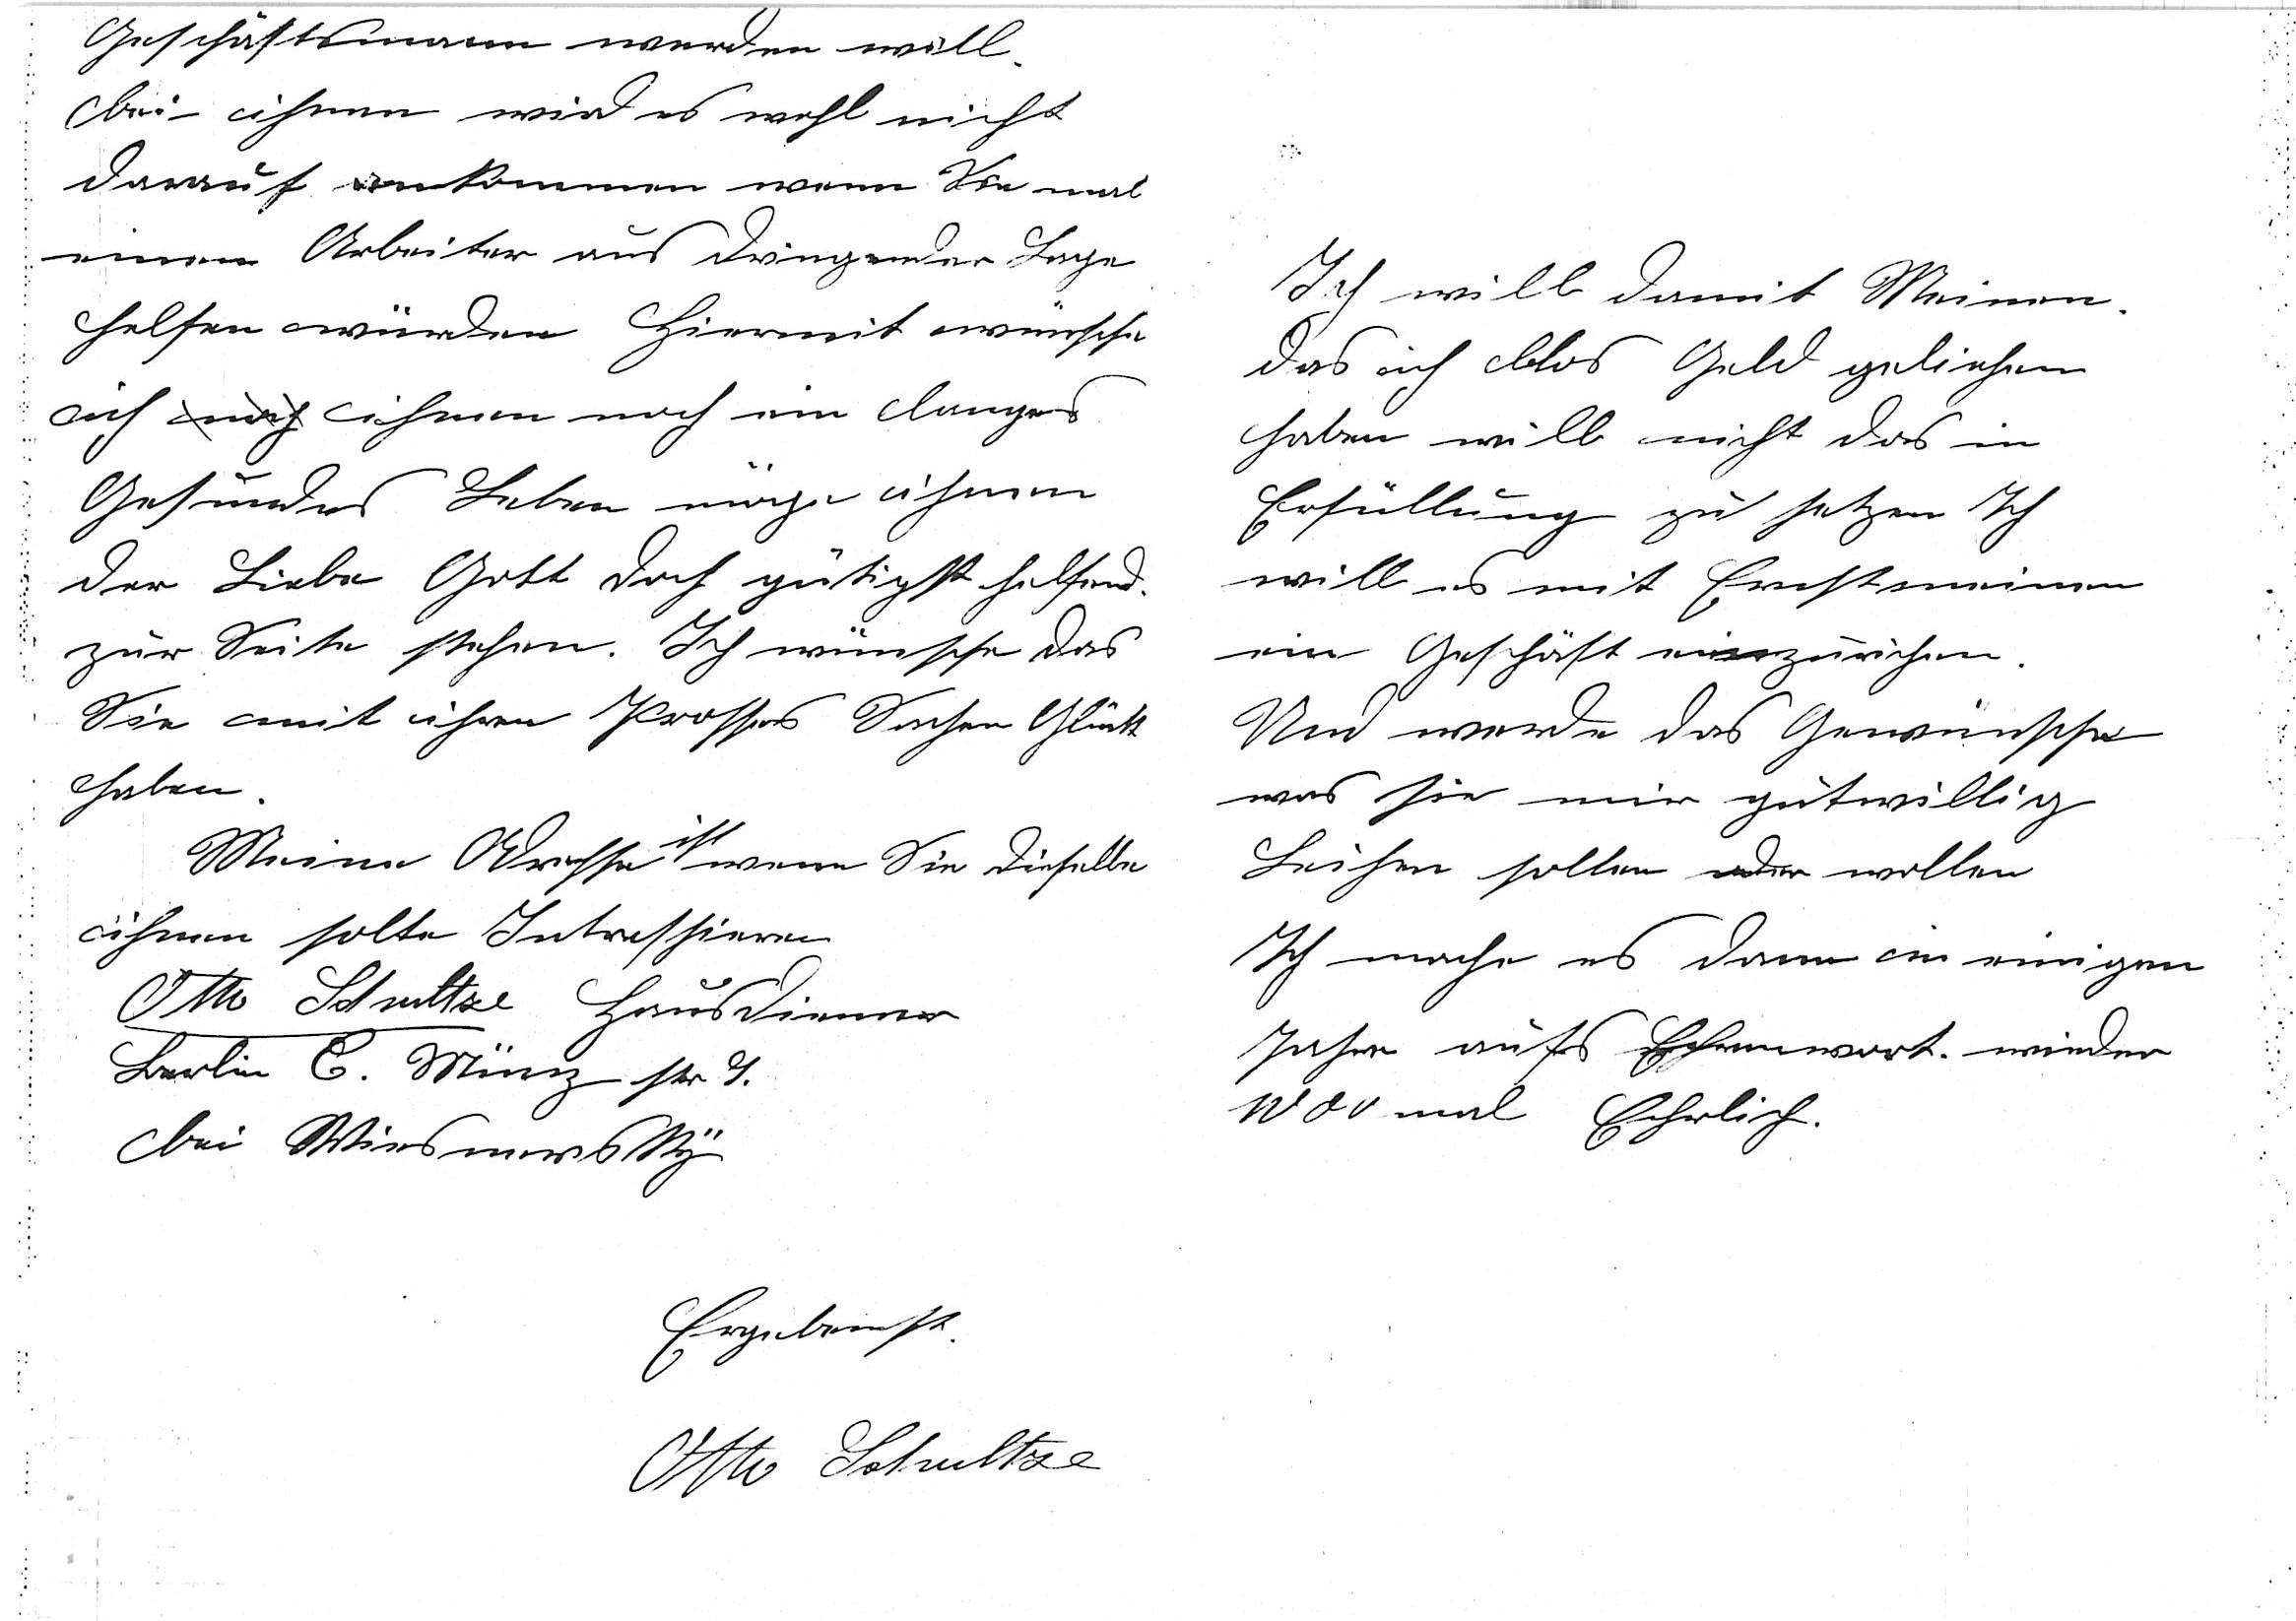 Geschäftsmann werden will.
bei ihnen wird es wohl nicht
darauf ankommen wenn Sie mal
einen Arbeiter aus dringender Lage
helfen würden Hiermit wünsche
ich noch ihnen noch ein langes
Gesundes Leben möge ihnen
der Liebe Gott doch gütigst helfend.
zur Seite stehen. Ich wünsche das
Sie mit ihren Prosses Sachen Glück
haben.
Meine Adresse ist wenn Sie dieselbe
ihnen solte Intressieren
Otto Schultze Hausdiener
Berlin C. Münz str
bei
Ergebenst.
Otto Schultze
Ich will damit Meinen.
das ich blos Geld geliehen
haben will nicht das in
Erfüllung zu setzen Ich
will es mit Ernst meinen
ein Geschäft
Und werde das Gewünsche
was sie mir gutwillig
Leihen sollen oder wollen
Ich mache es dann in einigen
Jahre aufs Ehrenwort. wieder
mal Ehrlich.